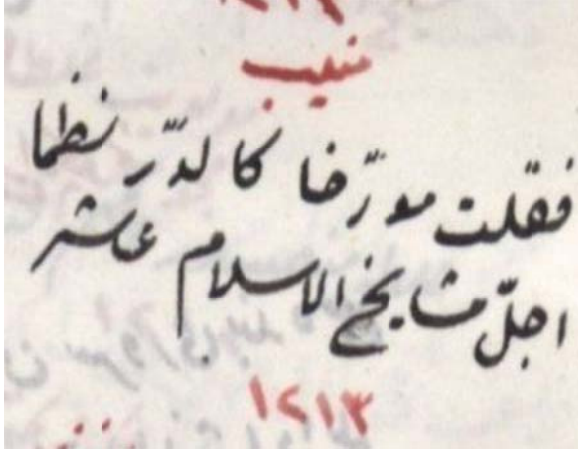 منيب
فقلت مورّخا كالدرّ نظما
اجلّ مشايخ الاسلام عاشر
١٢١٣